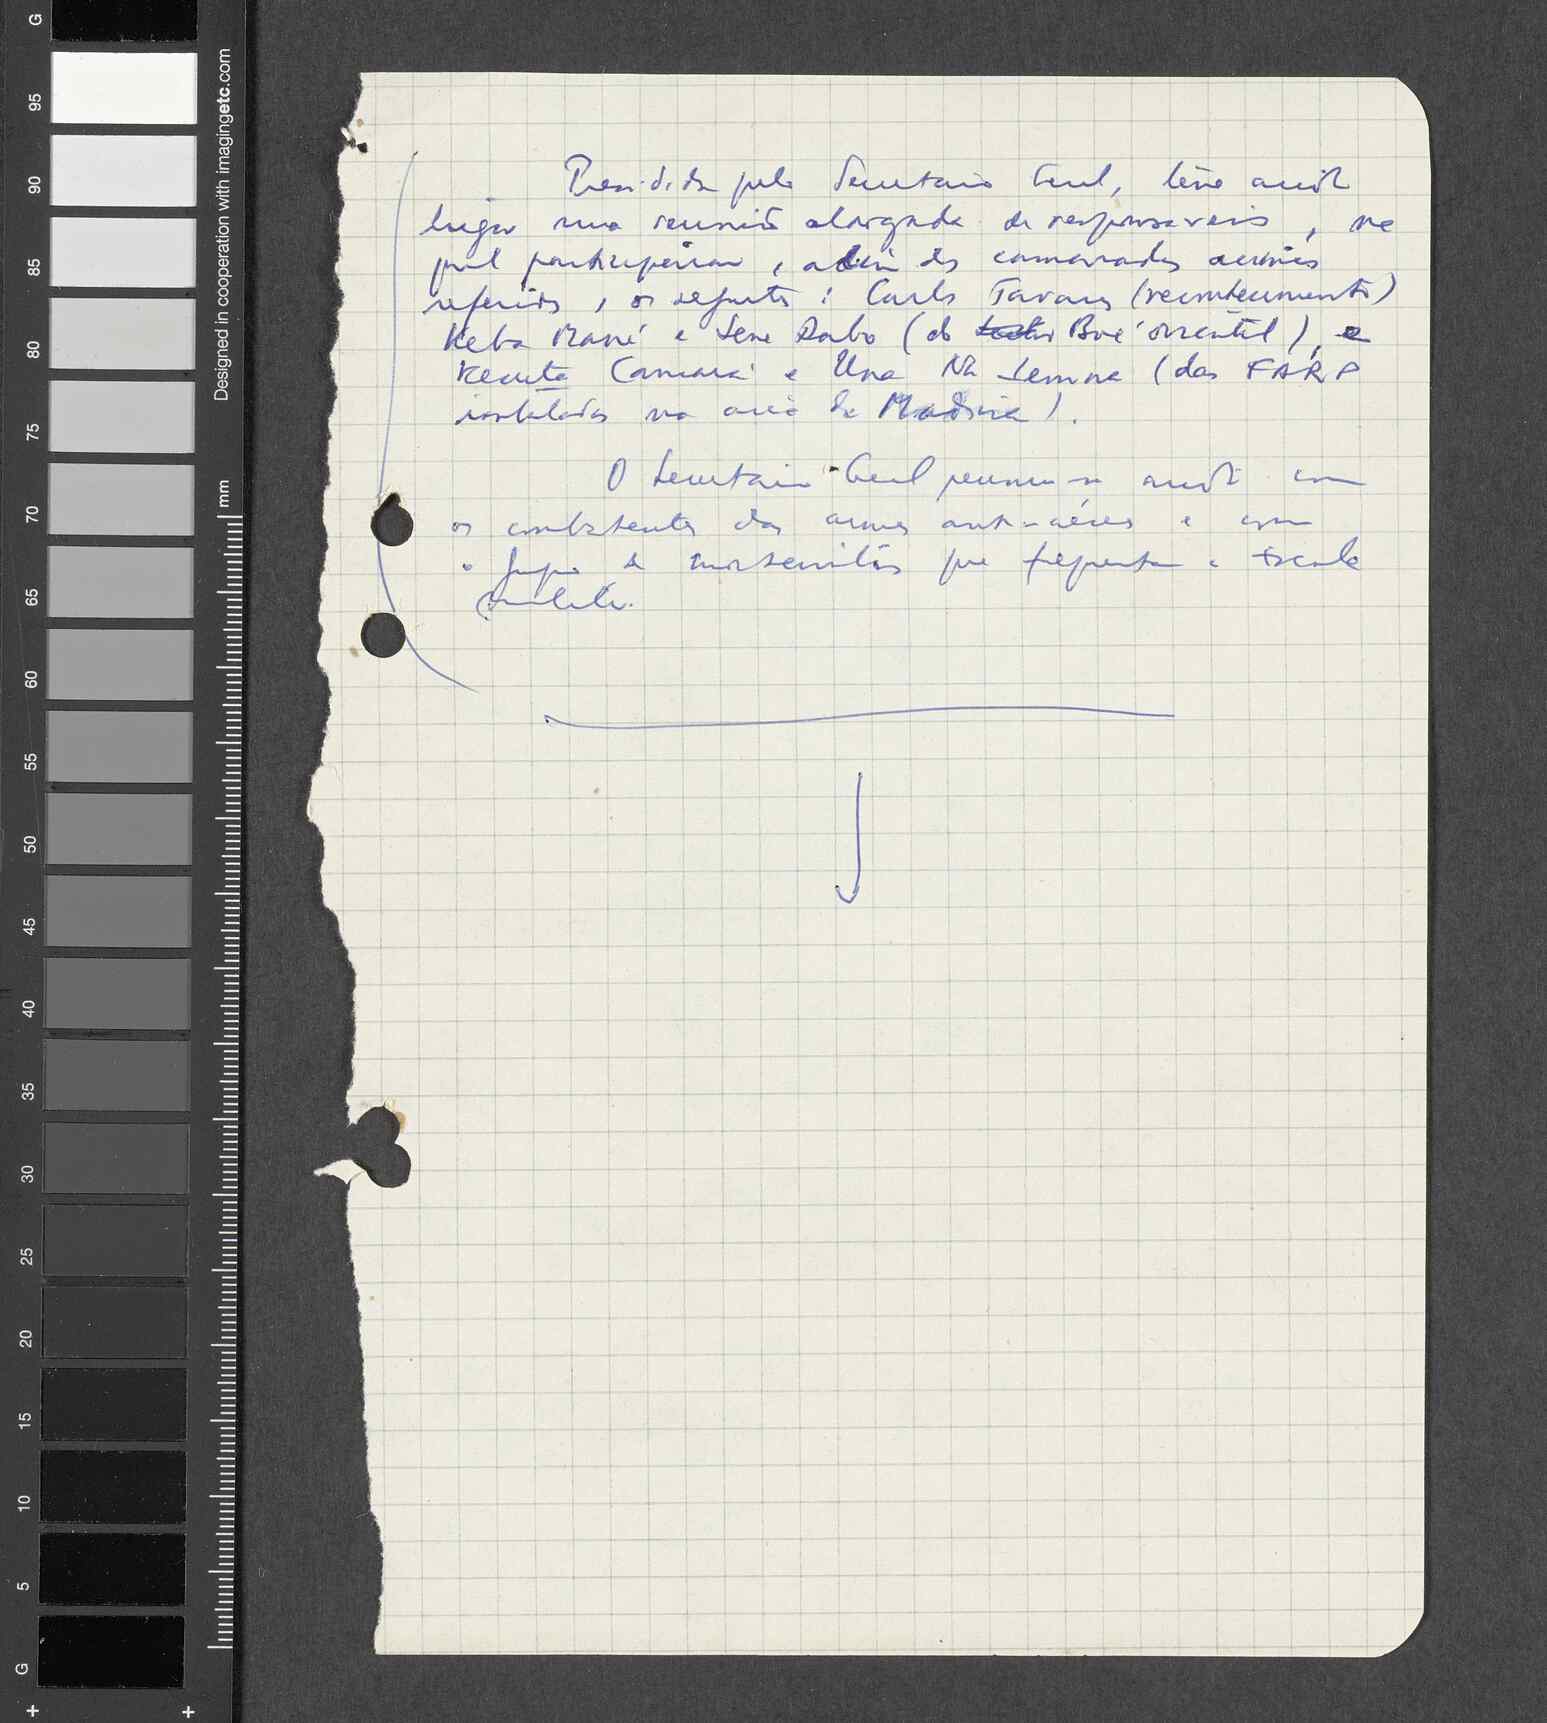 Presidida pelo Secretario Geral, teve ainda
lugar uma reunião alargada de responsaveis, na
qual participaram, além dos camaradas acima
referidos, os seguintes: Carlos Tavares (reconhecimento)
Keba Mané e Sene Dabo (do sector Boé oriental), e
Kecuta Camará e Una Na Semna (das FARP
instaladas na area de Madina).
O Secretario Geral reuniu-se ainda com
os combatentes das armas anti-aéreas e com
o grupo de que frequenta a Escola
G
95
90
85
80
75
70
65
60
55
50
45
40
35
30
25
20
15
10
5
G
Designed in cooperation with imagingetc.com
mm